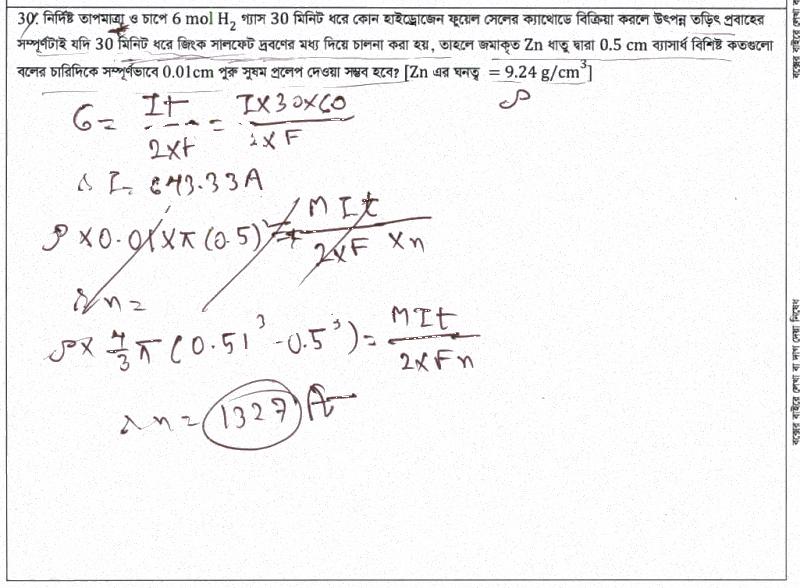 30. নির্দিষ্ট তাপমাত্রা ও চাপে 6 mol H₂ গ্যাস 30 মিনিট ধরে কোন হাইড্রোজেন ফুয়েল সেলের ক্যাথোডে বিক্রিয়া করলে উৎপন্ন তড়িৎ প্রবাহের
সম্পূর্ণটাই যদি 30 মিনিট ধরে জিংক সালফেট দ্রবণের মধ্য দিয়ে চালনা করা হয়, তাহলে জমাকৃত Zn ধাতু দ্বারা 0.5 cm ব্যাসার্ধ বিশিষ্ট কতগুলো
বলের চারিদিকে সম্পূর্ণভাবে 0.01cm পুরু সুষম প্রলেপ দেওয়া সম্ভব হবে? [Zn এর ঘনত্ব = 9.24 g/cm³]
ρ
6 = It / 2×F = I×30×60 / 2×F
∴ I = 643.33A
ρ × 0.01 × π (0.5)² = MIt / 2×F × n
∴ n =
ρ × 4/3 π (0.51³ - 0.5³) = MIt / 2×Fn
∴ n = 1327
বক্সের বাইরে লেখা বা দাগ দেয়া নিষেধ